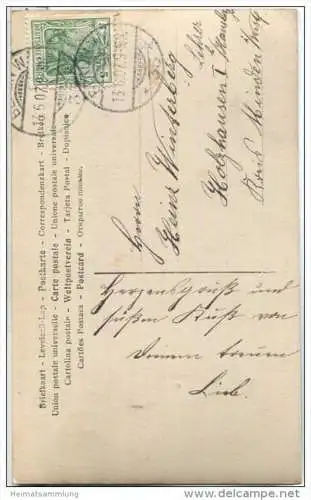 Briefkaart - Levelezö-Lap - Postkarte - Correspondenzkart - Brefkort
Union postale universelle - Carte postale - Unione postale universale
Cartolina postale - Weltpostverein - Tarjeta Postal - Dopisnice
Cartões Postaes - Postcard
Herrn
Heinr. Winterberg
Lehrer
Holzhausen I
Kreis Minden Westf
Herzensgruß und
süßen Kuß von
Deinem treuen
Lieb.
© Heimatsammlung